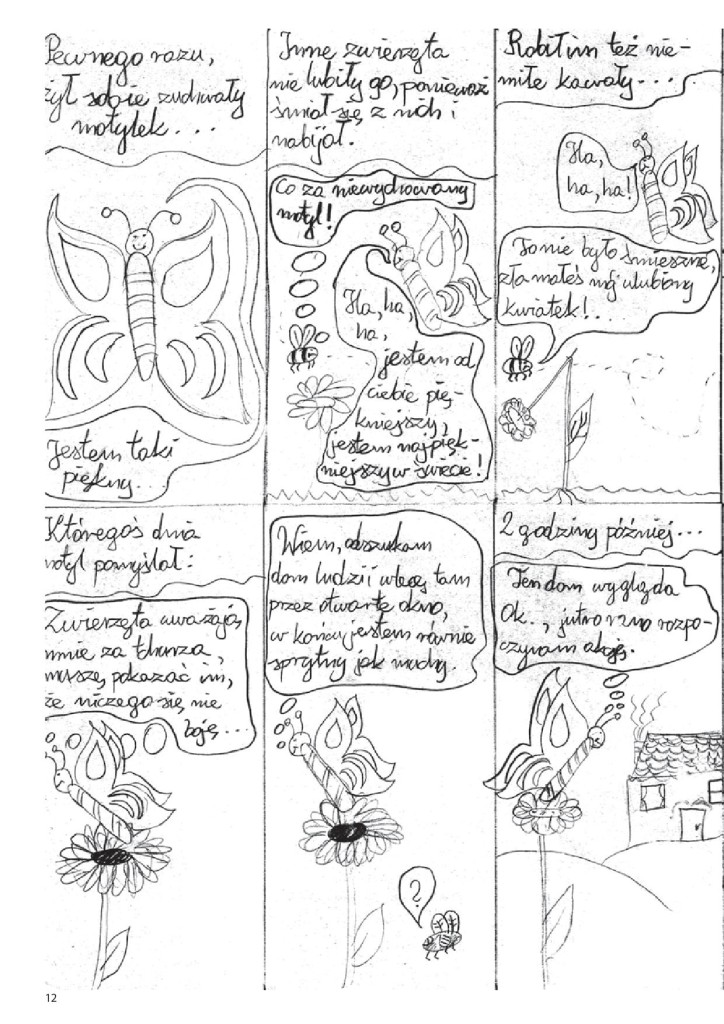 Pewnego razu,
żył sobie zuchwały
motylek...
Jestem taki
piękny...
Inne zwierzęta
nie lubiły go, ponieważ
śmiał się z nich i
nabijał.
Co za niewychowany
motyl!
Ha, ha,
ha,
jestem od
ciebie pię-
kniejszy,
jestem najpięk-
niejszy w świecie!
Robił im też nie-
miłe kawały...
Ha,
ha, ha!
To nie było śmieszne,
złamałeś mój ulubiony
kwiatek!..
Któregoś dnia
motyl pomyślał:
Zwierzęta uważają
mnie za tchórza,
muszę pokazać im,
że niczego się nie
boję...
Wiem, odszukam
dom ludzi i wlecę tam
przez otwarte okno,
w końcu jestem równie
sprytny jak muchy.
?
2 godziny później...
Ten dom wygląda
Ok.., jutro rano rozpo-
czynam akcję.
12